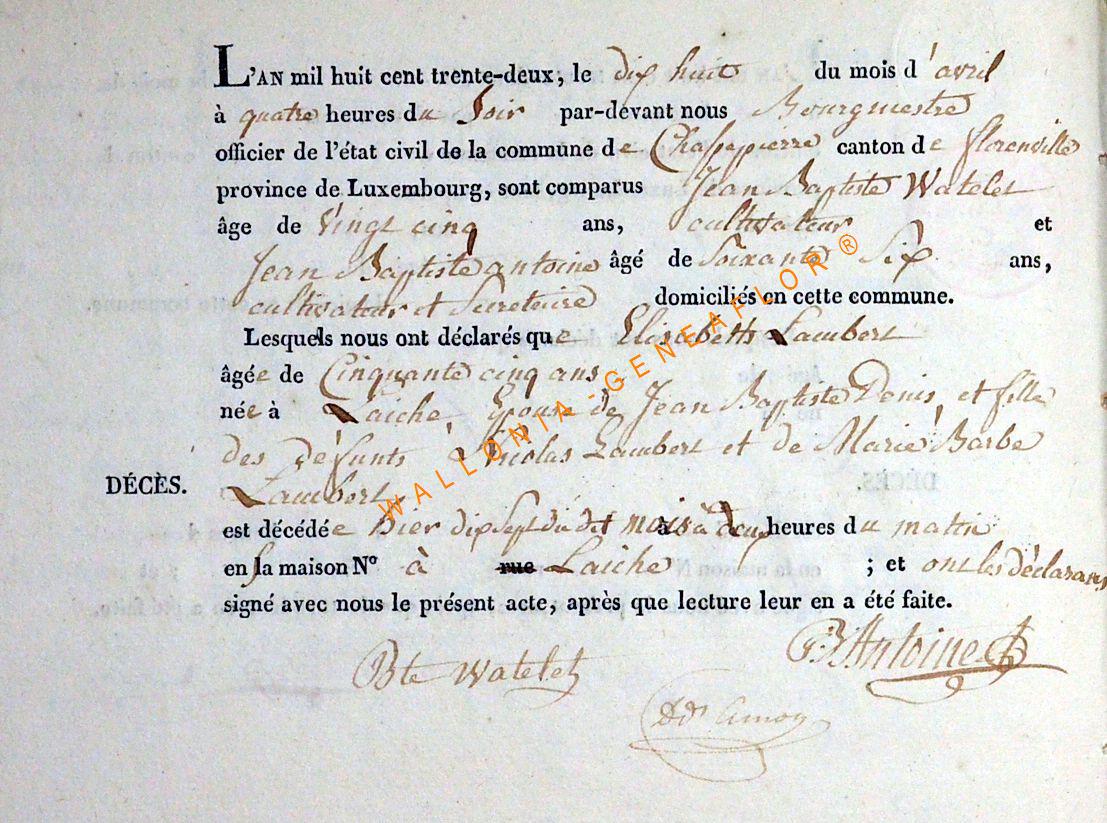 L'AN mil huit cent trente-deux, le dix huit du mois d'avril
à quatre heures du Soir par-devant nous Bourgmestre
officier de l'état civil de la commune de Chassepierre canton de florenville
province de Luxembourg, sont comparus Jean Baptiste Watelet
âge de Vingt cinq ans, cultivateur et
Jean Baptiste antoine âgé de Soixante Six ans,
cultivateur et Secretaire domiciliés en cette commune.
Lesquels nous ont déclarés que Elisabeth Lambert
âgée de Cinquante cinq ans
née à Laiche, Epouse de Jean Baptiste Denis, et fille
des défunts Nicolas Lambert et de Marie Barbe
Lambert
DÉCÈS.
est décédée hier dix Sept du dit mois à deux heures du matin
en sa maison Nº à rue Laiche ; et ont les déclarans
signé avec nous le présent acte, après que lecture leur en a été faite.
Bte Watelet
JB Antoine
WALLONIA-GENEAFLOR®